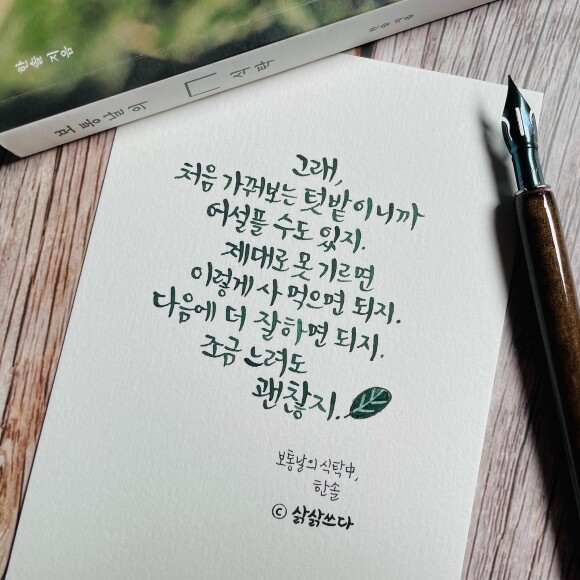 한솔 지음
보통날의 식탁
한솔 지음
그래,
처음 가꿔보는 텃밭이니까
어설플 수도 있지.
제대로 못 기르면
이렇게 사 먹으면 되지.
다음에 더 잘하면 되지.
조금 느려도
괜찮지.
보통날의 식탁中,
한솔
© 삵삵쓰다